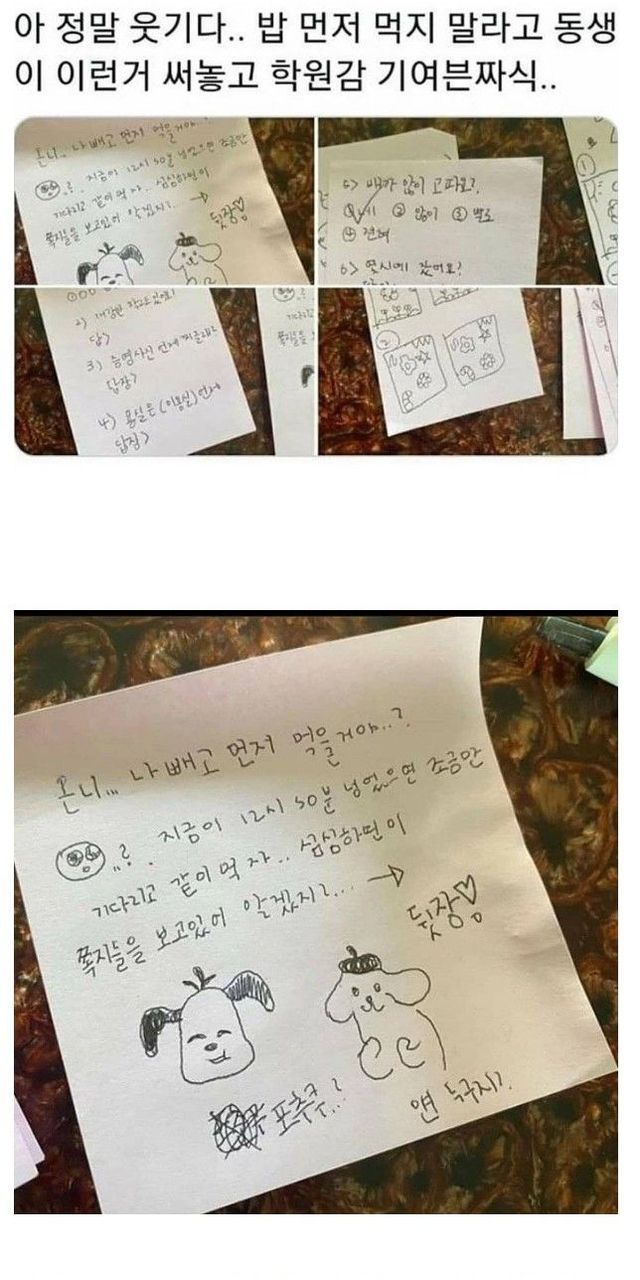 아 정말 웃기다.. 밥 먼저 먹지 말라고 동생
이 이런거 써놓고 학원감 기여븐짜식..
온니.. 나 빼고 먼저 먹을거야..?
..?. 지금이 12시 50분 넘었으면 조금만
기다리고 같이 먹자.. 심심하면 이
쪽지들을 보고있어 알겠지?.. →
뒷장♡
5> 배가 많이 고파요?
① 네 ② 많이 ③ 별로
④ 전혀
6> 몇시에 잤어요?
2)
답>
3) 증명사진 언제
답장>
4) 미용실은 (미용실) 언제
답장>
①
②
온니... 나 빼고 먼저 먹을거야..?
..?. 지금이 12시 50분 넘었으면 조금만
기다리고 같이 먹자.. 심심하면 이
쪽지들을 보고있어 알겠지?... →
뒷장♡
포차코..?
앤 누구지?.